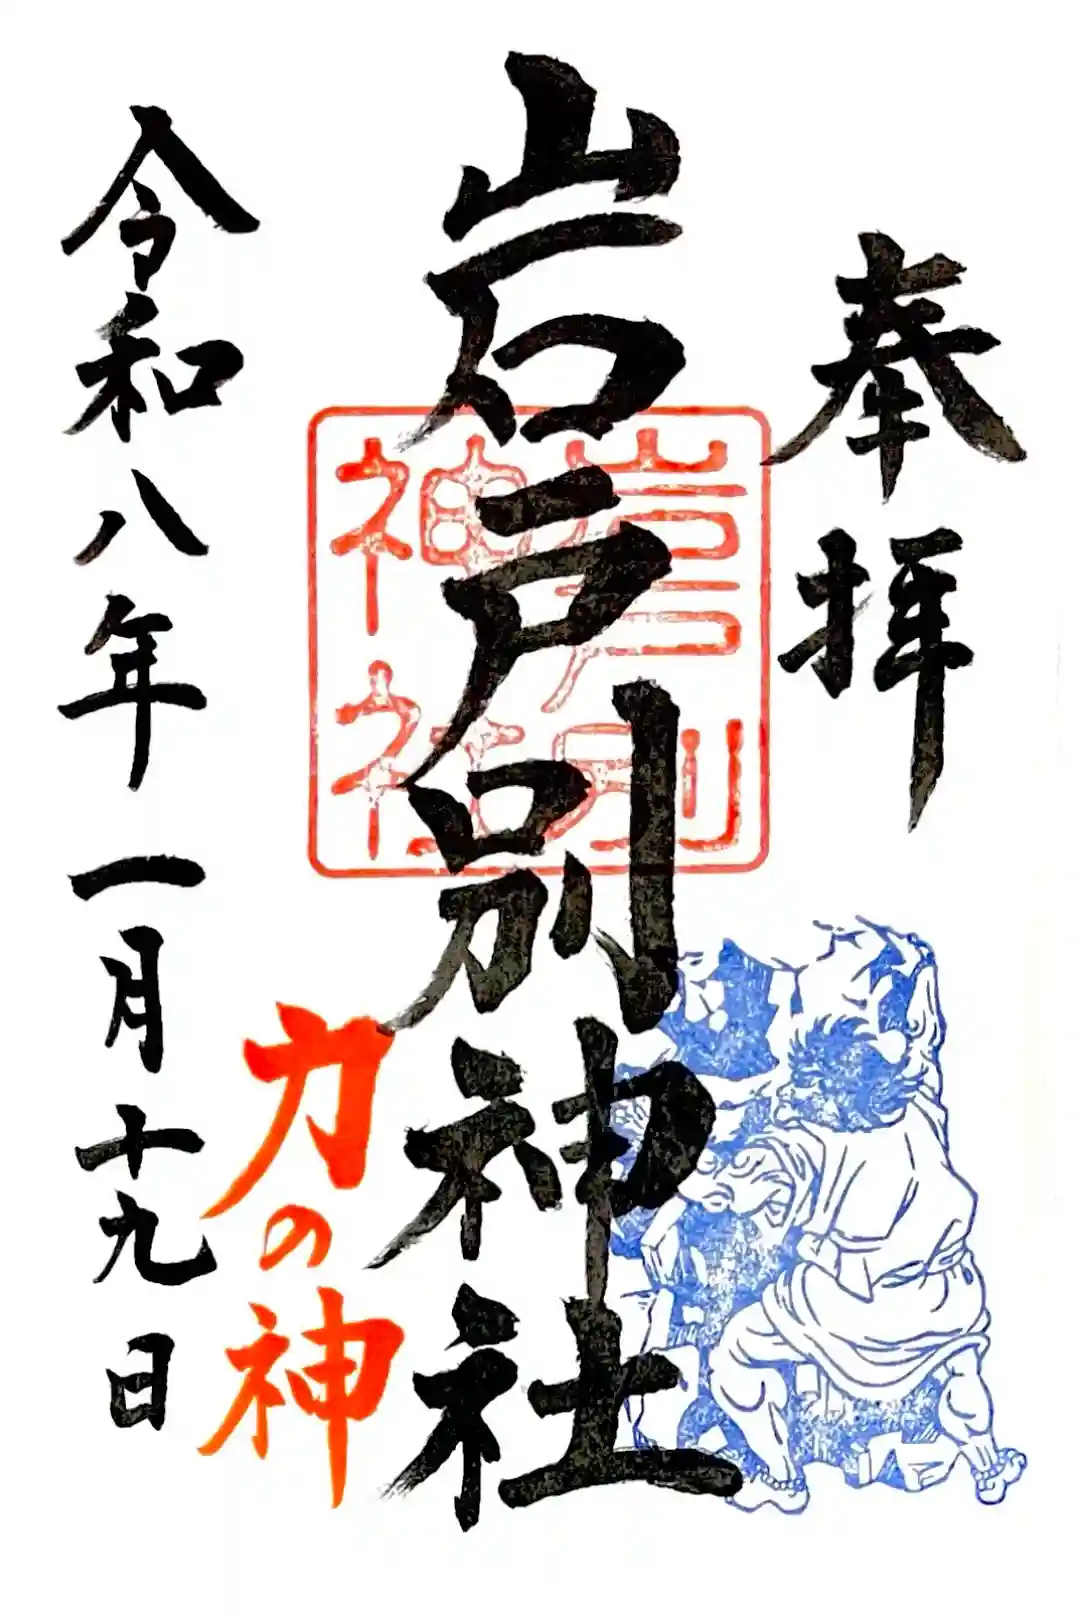 奉拝
岩戸別神社
岩戸別
神社
力の神
令和八年一月十九日